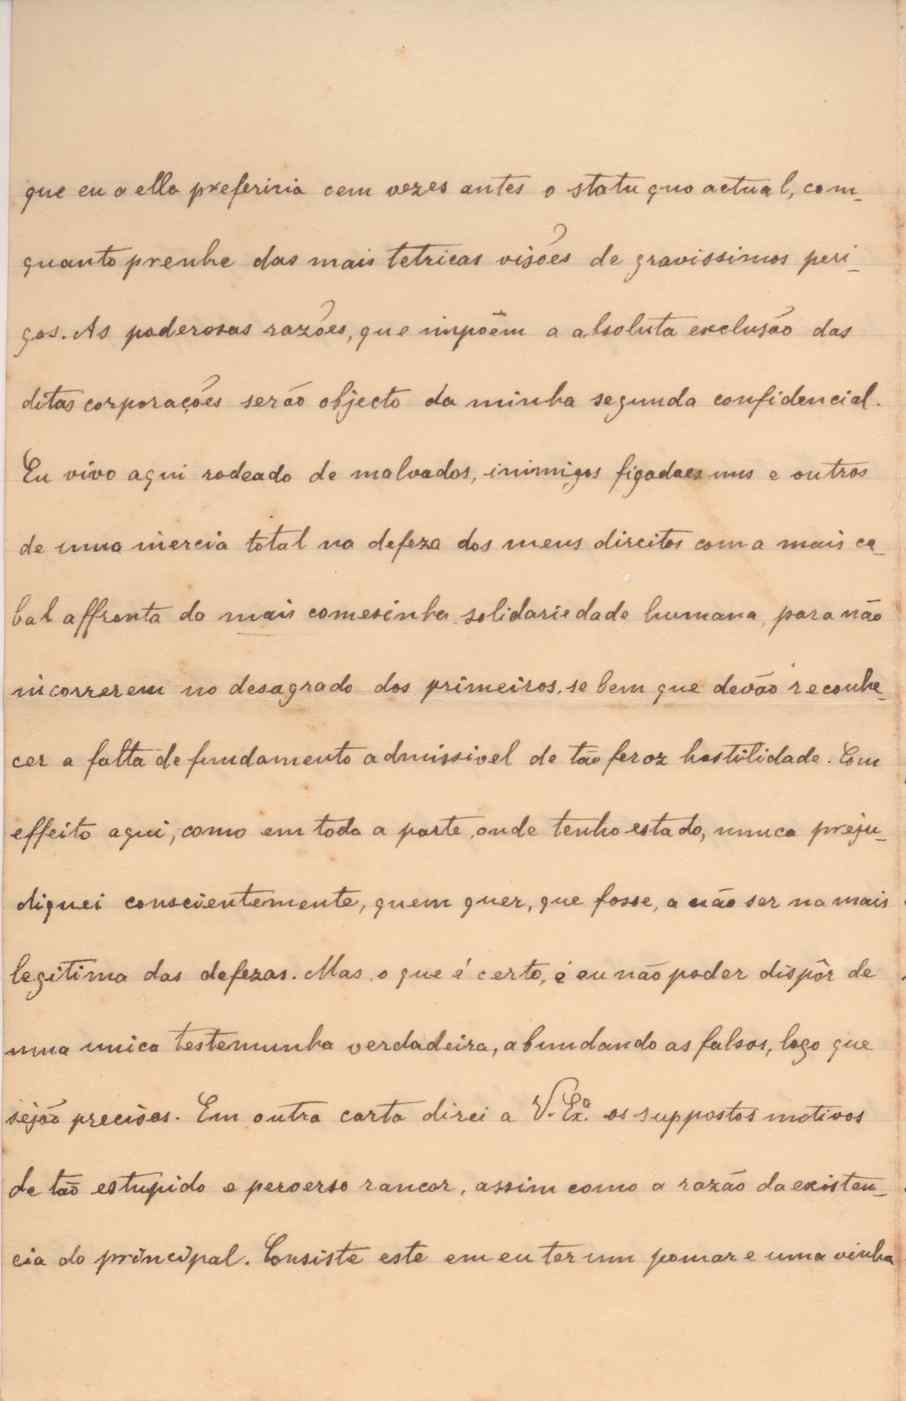 que eu a ella preferiria cem vezes antes o statu quo actual, com-
quanto prenhe das mais tetricas visões de gravissimos peri-
gos. As poderosas razões, que impoêm a absoluta exclusão das
ditas corporações serão objecto da minha segunda confidencial.
Eu vivo aqui rodeado de malvados, inimigos figadaes uns e outros
de uma inercia total na defeza dos meus direitos com a mais ca-
bal affronta da mais comesinha solidariedade humana, para não
incorrerem no desagrado dos primeiros, se bem que devão reconhe-
cer a falta de fundamento admissivel de tão feroz hostilidade. Com
effeito aqui, como em toda a parte, onde tenho estado, nunca preju-
diquei conscientemente, quem quer, que fosse, a não ser na mais
legitima das defezas. Mas, o que é certo, é eu não poder dispôr de
uma unica testemunha verdadeira, abundando as falsas, logo que
sejão precisas. Em outra carta direi a V. Exª. os suppostos motivos
de tão estupido e perverso rancor, assim como a razão da existen-
cia do principal. Consiste este em eu ter um pomar e uma vinha